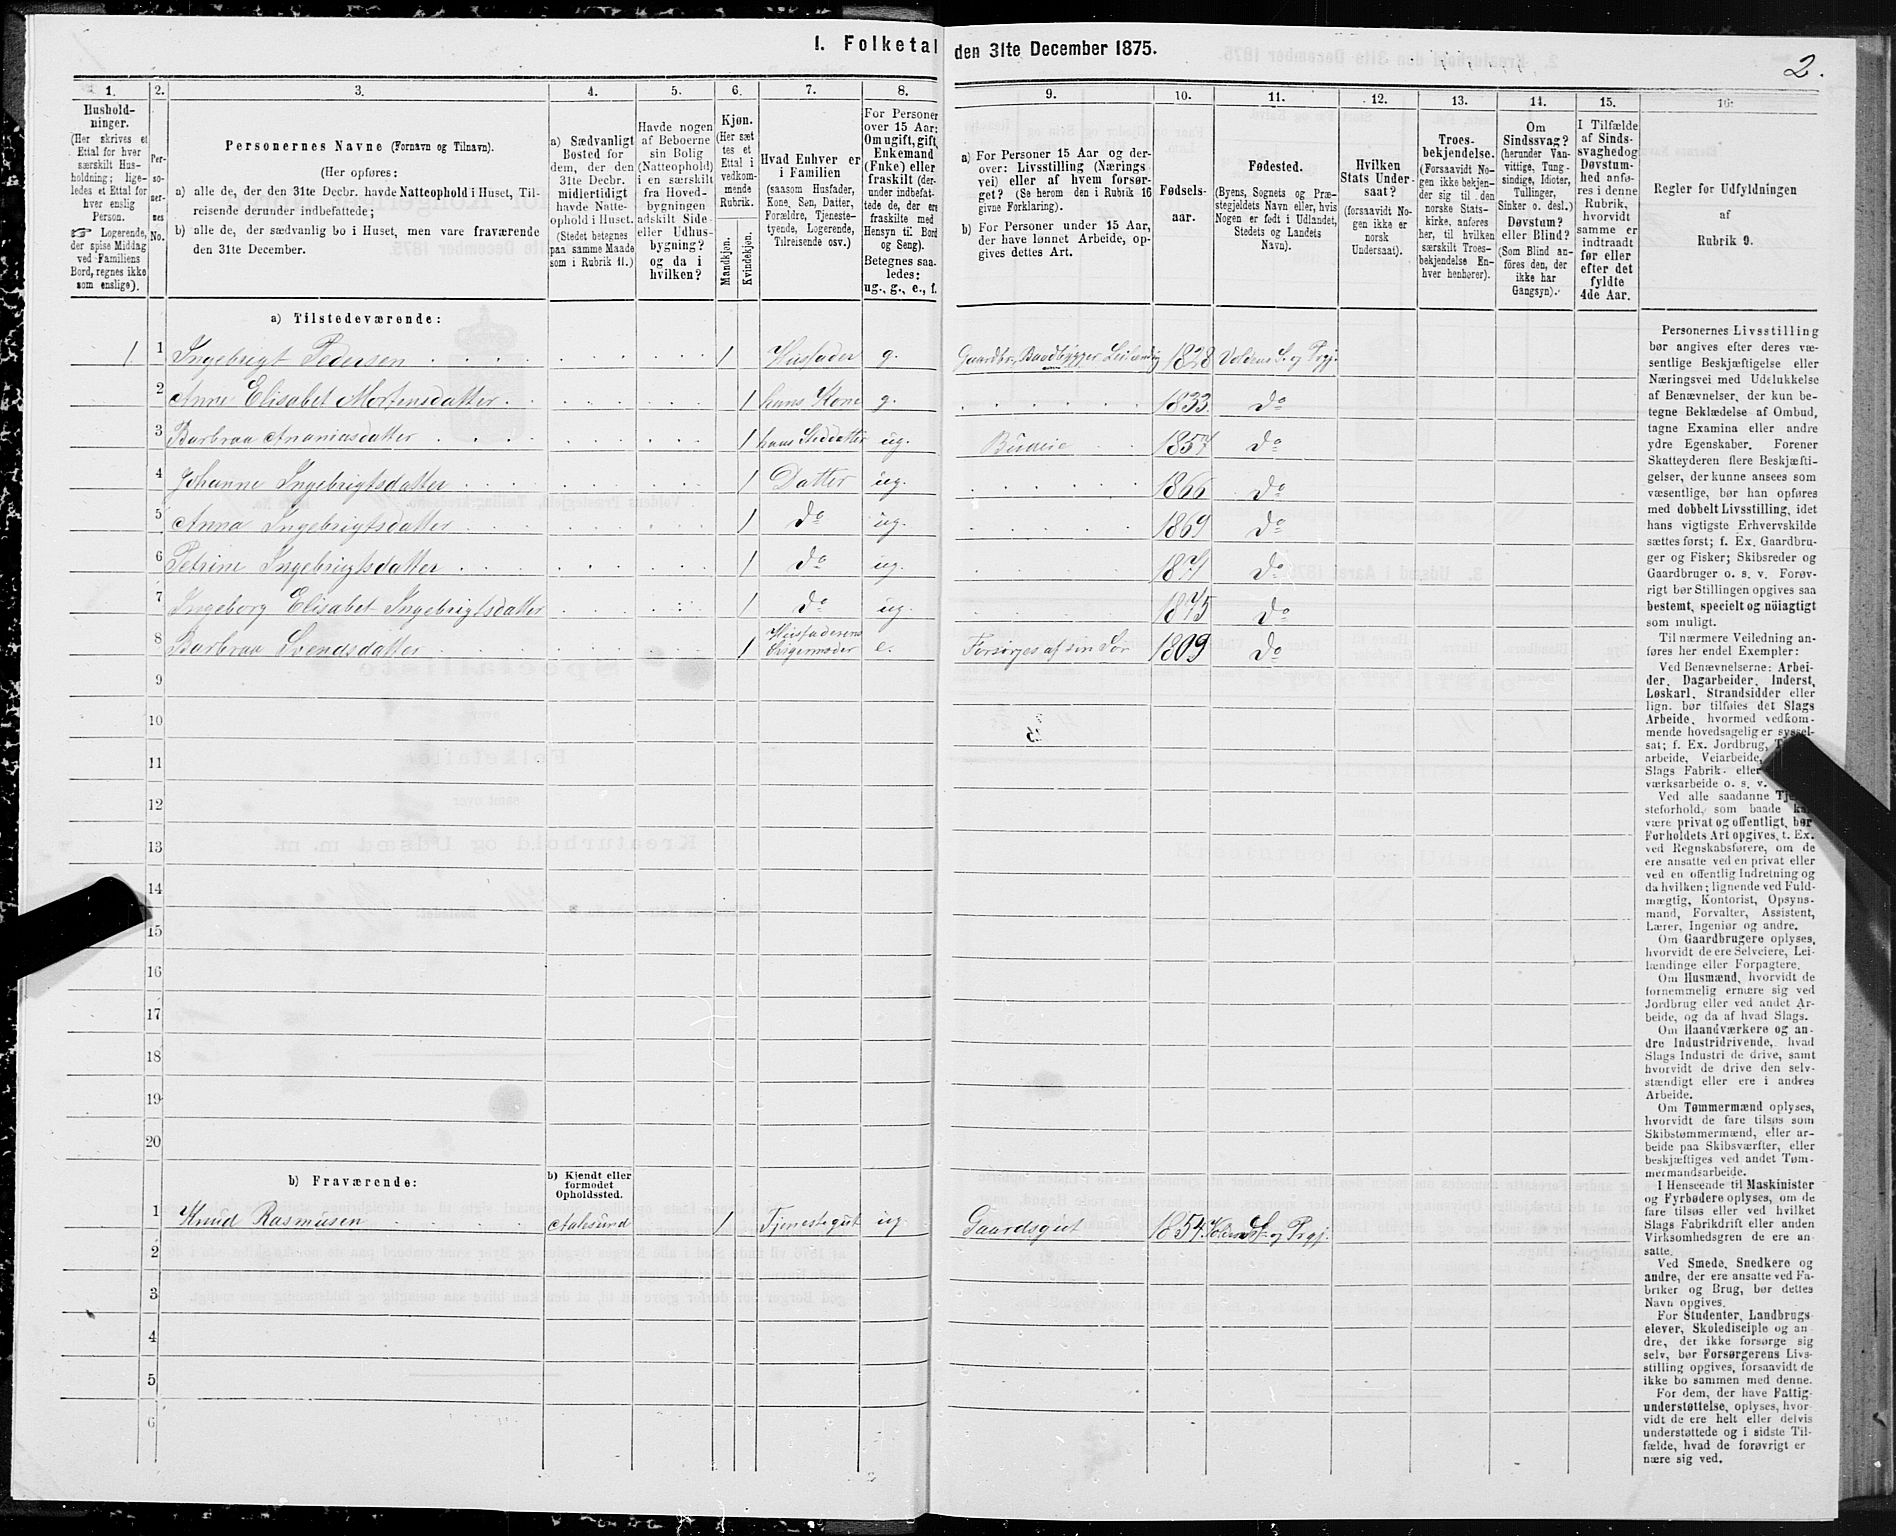 I. Folketal den 31te December 1875.
2.
1. 2. 3. 4. 5. 6. 7. 8. 9. 10. 11. 12. 13. 14. 15. 16.
Hushold-
ninger.
(Her skrives et
Ettal for hver
særskilt Hus-
holdning; lige-
ledes et Ettal for
hver enslig
Person.
☞ Logerende,
der spise Middag
ved Familiens
Bord, regnes ikke
som enslige).
Per-
so-
ner-
nes
No.
Personernes Navne (Fornavn og Tilnavn).
(Her opføres:
a) alle de, der den 31te Decbr. havde Natteophold i Huset, Til-
reisende derunder indbefattede;
b) alle de, der sædvanlig bo i Huset, men vare fraværende
den 31te December.
a) Sædvanligt
Bosted for
dem, der den
31te Decbr.
midlertidigt
havde Natte-
ophold i Huset.
(Stedet betegnes
paa samme Maade
som i Rubrik 11.)
Havde nogen
af Beboerne
sin Bolig
(Natteophold)
i en særskilt
fra Hoved-
bygningen
adskilt Side-
eller Udhus-
bygning?
og da i
hvilken?
Kjøn.
(Her sæt
tes et
Ettal i
vedkom-
mende
Rubrik.
Mandkjøn.
Kvindekjøn.
Hvad Enhver er
i Familien
(saasom Husfader,
Kone, Søn, Datter,
Forældre, Tjeneste-
tyende, Logerende,
Tilreisende osv.)
For Personer
over 15 Aar:
Om ugift, gift,
Enkemand
(Enke) eller
fraskilt (der-
under indbefat-
tede de, der ere
fraskilte med
Hensyn til Bord
og Seng).
Betegnes saa-
ledes:
ug., g., e., f.
a) For Personer 15 Aar og der-
over: Livsstilling (Nærings
vei) eller af hvem forsør-
get? (Se herom den i Rubrik 16
givne Forklaring).
b) For Personer under 15 Aar,
der have lønnet Arbeide, op-
gives dettes Art.
Fødsels-
aar.
Fødested.
(Byens, Sognets og Præ-
stegjeldets Navn eller, hvis
Nogen er født i Udlandet,
Stedets og Landets
Navn).
Hvilken
Stats Under-
saat?
(forsaavidt No-
gen ikke er
norsk
Undersaat).
Troes-
bekjendelse.
(Forsaavidt No-
gen ikke bekjen-
der sig til den
norske Stats-
kirke, anføres
her, til hvilken
særskilt Troes-
bekjendelse En-
hver henhører).
Om
Sindssvag?
(herunder Van-
vittige, Tung-
sindige, Idioter,
Tullinger,
Sinker o. desl.)
Døvstum?
eller Blind?
(Som Blind an-
føres den, der
ikke har
Gangsyn).
I Tilfælde
af Sinds-
svaghed og
Døvstum-
hed anfø-
res i denne
Rubrik,
hvorvidt
samme er
indtraadt
før eller
efter det
fyldte
4de Aar.
Regler for Udfyldningen
af
Rubrik 9.
a) Tilstedeværende:
1 1 Ingebrigt Pedersen 1 Husfader g. Gaardbr. Baadbygger Leilænding 1828 Voldens S. og Prgj.
2 Anne Elisabet Mortensdatter 1 hans Kone g. 1833 Do
3 Barbraa Ananiasdatter 1 hans Steddatter ug. Budeie 1857 Do
4 Johanne Ingebrigtsdatter 1 Datter ug. 1866 Do
5 Anna Ingebrigtsdatter 1 Do ug. 1869 Do
6 Petrine Ingebrigtsdatter 1 Do ug. 1871 Do
7 Ingeborg Elisabet Ingebrigtsdatter 1 Do ug. 1875 Do
8 Barbraa Svendsdatter 1 Husfaderens Svigermoder e. Forsørges af sin Søn 1809 Do
9
10
11
12
13
14
15
16
17
18
19
20
b) Fraværende:
b) Kjendt eller
formodet
Opholdssted.
1 Knud Rasmusen Aalesund 1 Tjenestegut ug. Gaardsgut 1854 Voldens S. og Prgj.
2
3
4
5
6
Personernes Livsstilling
bør angives efter deres væ-
sentlige Beskjæftigelse eller
Næringsvei med Udelukkelse
af Benævnelser, der kun be-
tegne Beklædelse af Ombud,
tagne Examina eller andre
ydre Egenskaber. Forener
Skatteyderen flere Beskjæfti-
gelser, der kunne ansees som
væsentlige, bør han opføres
med dobbelt Livsstilling, idet
hans vigtigste Erhvervskilde
sættes først; f. Ex. Gaardbru-
ger og Fisker; Skibsreder og
Gaardbruger o. s. v. Forøv-
rigt bør Stillingen opgives saa
bestemt, specielt og nöiagtigt
som muligt.
Til nærmere Veiledning an-
føres her endel Exempler:
Ved Benævnelserne: Arbei-
der, Dagarbeider, Inderst,
Løskarl, Strandsidder eller
lign. bør tilføies det Slags
Arbeide, hvormed vedkom-
mende hovedsagelig er syssel-
sat; f. Ex. Jordbrug,
arbeide, Veiarbeide,
Slags Fabrik- eller
værksarbeide o. s. v.
Ved alle saadanne Tje-
steforhold, som baade kan
være privat og offentligt, bør
Forholdets Art opgives, t. Ex.
ved Regnskabsførere, om de
ere ansatte ved en privat eller
ved en offentlig Indretning og
da hvilken; lignende ved Fuld-
mægtig, Kontorist, Opsyns-
mand, Forvalter, Assistent,
Lærer, Ingeniør og andre.
Om Gaardbrugere oplyses,
hvorvidt de ere Selveiere, Lei-
lændinge eller Forpagtere.
Om Husmænd, hvorvidt de
fornemmelig ernære sig ved
Jordbrug eller ved andet Ar-
beide, og da af hvad Slags.
Om Haandværkere og an-
dre Industridrivende, hvad
Slags Industri de drive, samt
hvorvidt de drive den selv-
stændigt eller ere i andres
Arbeide.
Om Tømmermænd oplyses,
hvorvidt de fare tilsøs som
Skibstømmermænd, eller ar-
beide paa Skibsværfter, eller
beskjæftiges ved andet Tøm-
mermandsarbeide.
I Henseende til Maskinister
og Fyrbødere oplyses, om de
fare tilsøs eller ved hvilket
Slags Fabrikdrift eller anden
Virksomhedsgren de ere an-
satte.
Ved Smede, Snedkere og
andre, der ere ansatte ved Fa-
briker og Brug, bør dettes
Navn opgives.
For Studenter, Landbrugs-
elever, Skoledisciple og an-
dre, der ikke forsørge sig
selv, bør Forsørgerens Livs-
stilling opgives, forsaavidt de
ikke bo sammen med denne.
For dem, der have Fattig-
understøttelse, oplyses, hvor-
vidt de ere helt eller delvis
understøttede og i sidste Til-
fælde, hvad de forøvrigt er
nære sig ved.